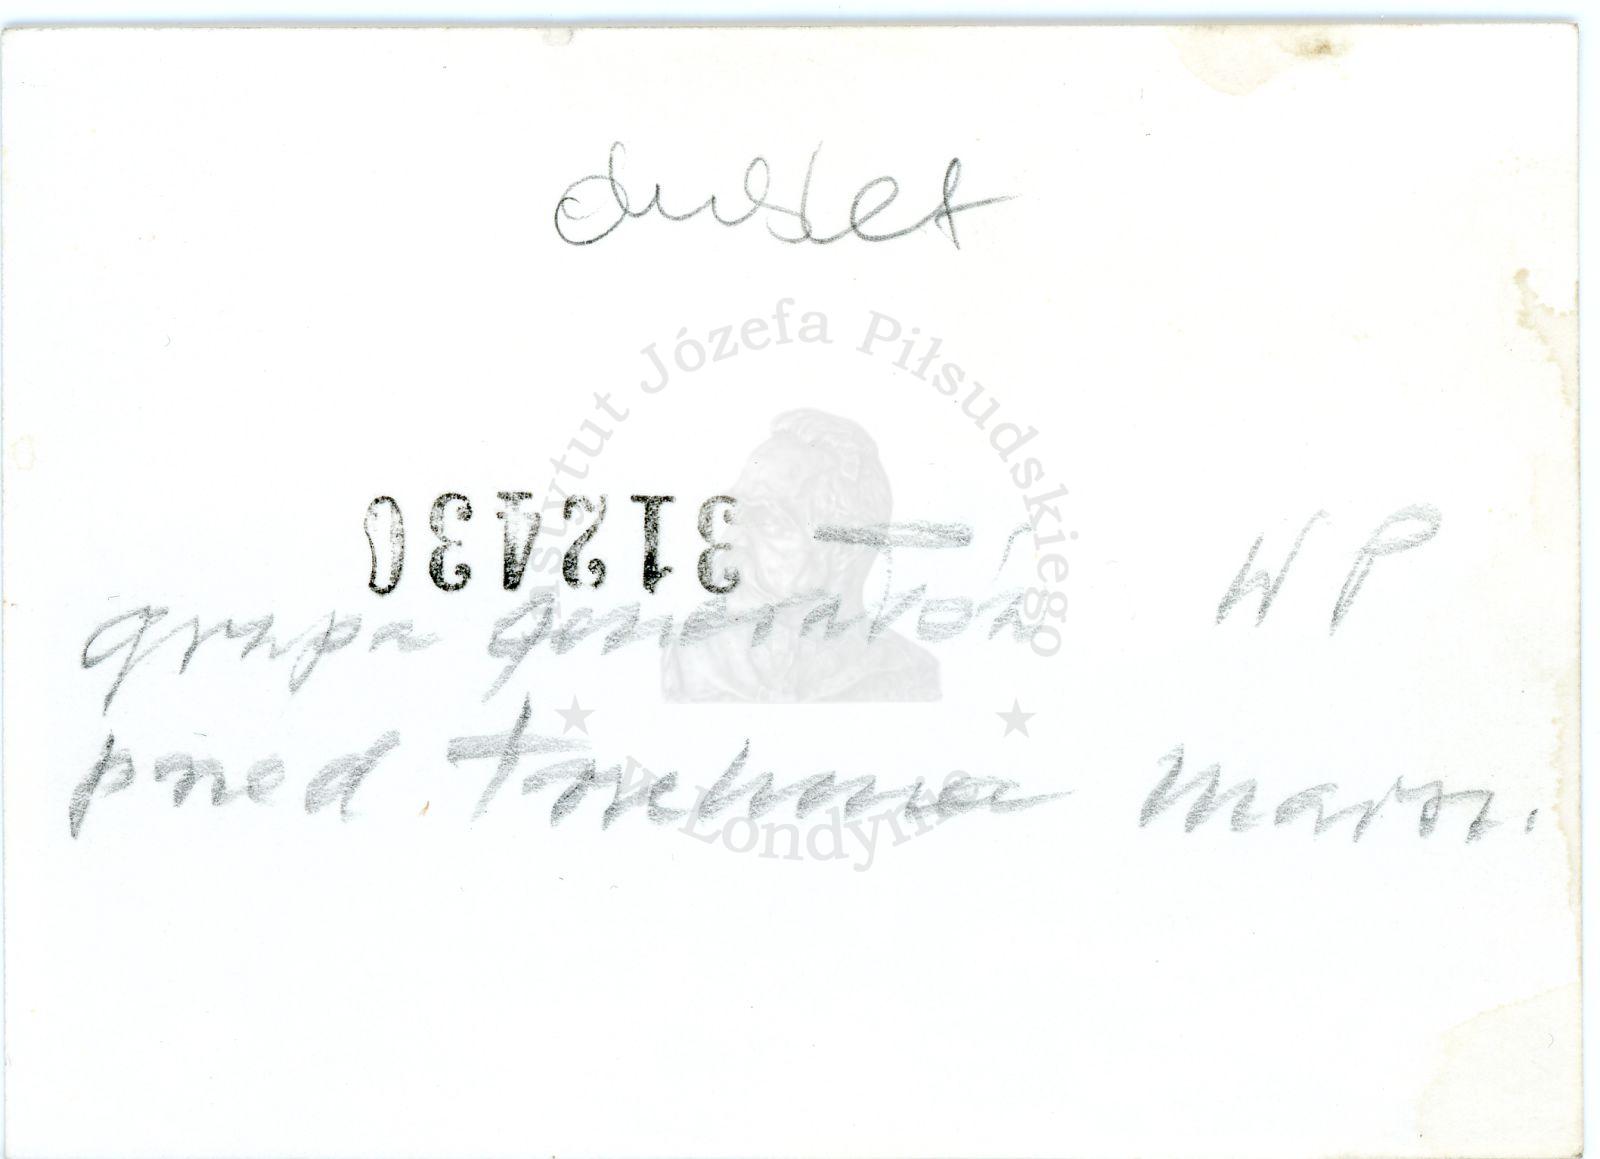 dublet
Instytut Józefa Piłsudskiego
312430
grupa generałów WP
przed marsz.
w Londynie